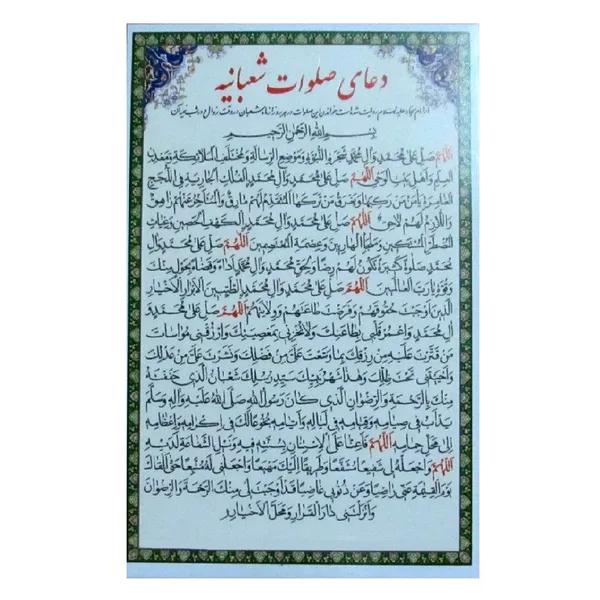 دعای صلوات شعبانیه
از امام سجاد علیه السلام روایت شده است خواندن این صلوات در هر روز از ماه شعبان در وقت زوال و در شب نیمه آن
بِسْمِ اللهِ الرَّحْمٰنِ الرَّحِیمِ
اَللّٰهُمَّ صَلِّ عَلیٰ مُحَمَّدٍ وَآلِ مُحَمَّدٍ شَجَرَةِ النُّبُوَّةِ وَمَوْضِعِ الرِّسَالَةِ وَمُخْتَلَفِ الْمَلَائِکَةِ وَمَعْدِنِ
الْعِلْمِ وَأَهْلِ بَیْتِ الْوَحْیِ اَللّٰهُمَّ صَلِّ عَلیٰ مُحَمَّدٍ وَآلِ مُحَمَّدٍ الْفُلْكِ الْجَارِیَةِ فِی اللُّجَجِ
الْغَامِرَةِ یَأْمَنُ مَنْ رَکِبَهَا وَیَغْرَقُ مَنْ تَرَکَهَا الْمُتَقَدِّمُ لَهُمْ مَارِقٌ وَالْمُتَأَخِّرُ عَنْهُمْ زَاهِقٌ
وَاللَّازِمُ لَهُمْ لَاحِقٌ اَللّٰهُمَّ صَلِّ عَلیٰ مُحَمَّدٍ وَآلِ مُحَمَّدٍ الْکَهْفِ الْحَصِینِ وَغِیَاثِ
الْمُضْطَرِّ الْمُسْتَکِینِ وَمَلْجَأِ الْهَارِبِینَ وَعِصْمَةِ الْمُعْتَصِمِینَ اَللّٰهُمَّ صَلِّ عَلیٰ مُحَمَّدٍ وَآلِ
مُحَمَّدٍ صَلَاةً کَثِیرَةً تَکُونُ لَهُمْ رِضًا وَلِحَقِّ مُحَمَّدٍ وَآلِ مُحَمَّدٍ أَدَاءً وَقَضَاءً بِحَوْلٍ مِنْكَ
وَقُوَّةٍ یَا رَبَّ الْعَالَمِینَ اَللّٰهُمَّ صَلِّ عَلیٰ مُحَمَّدٍ وَآلِ مُحَمَّدٍ الطَّیِّبِینَ الْأَبْرَارِ الْأَخْیَارِ
الَّذِینَ أَوْجَبْتَ حُقُوقَهُمْ وَفَرَضْتَ طَاعَتَهُمْ وَوِلَایَتَهُمْ اَللّٰهُمَّ صَلِّ عَلیٰ مُحَمَّدٍ وَ
آلِ مُحَمَّدٍ وَاعْمُرْ قَلْبِی بِطَاعَتِكَ وَلَا تُخْزِنِی بِمَعْصِیَتِكَ وَارْزُقْنِی مُوَاسَاةَ
مَنْ قَتَّرْتَ عَلَیْهِ مِنْ رِزْقِكَ بِمَا وَسَّعْتَ عَلَیَّ مِنْ فَضْلِكَ وَنَشَرْتَ عَلَیَّ مِنْ عَدْلِكَ
وَأَحْیَیْتَنِی تَحْتَ ظِلِّكَ وَهٰذَا شَهْرُ نَبِیِّكَ سَیِّدِ رُسُلِكَ شَعْبَانُ الَّذِی حَفَفْتَهُ
مِنْكَ بِالرَّحْمَةِ وَالرِّضْوَانِ الَّذِی کَانَ رَسُولُ اللهِ صَلَّی اللهُ عَلَیْهِ وَآلِهِ وَسَلَّمَ
یَدْأَبُ فِی صِیَامِهِ وَقِیَامِهِ فِی لَیَالِیهِ وَأَیَّامِهِ بُخُوعًا لَكَ فِی إِکْرَامِهِ وَإِعْظَامِهِ
إِلیٰ مَحَلِّ حِمَامِهِ اَللّٰهُمَّ فَأَعِنَّا عَلَی الْاِسْتِنَانِ بِسُنَّتِهِ فِیهِ وَنَیْلِ الشَّفَاعَةِ لَدَیْهِ
اَللّٰهُمَّ وَاجْعَلْهُ لِی شَفِیعًا مُشَفَّعًا وَطَرِیقًا إِلَیْكَ مَهْیَعًا وَاجْعَلْنِی لَهُ مُتَّبِعًا حَتّیٰ أَلْقَاكَ
یَوْمَ الْقِیٰمَةِ عَنِّی رَاضِیًا وَعَنْ ذُنُوبِی غَاضِیًا قَدْ أَوْجَبْتَ لِی مِنْكَ الرَّحْمَةَ وَالرِّضْوَانَ
وَأَنْزَلْتَنِی دَارَ الْقَرَارِ وَمَحَلَّ الْأَخْیَارِ